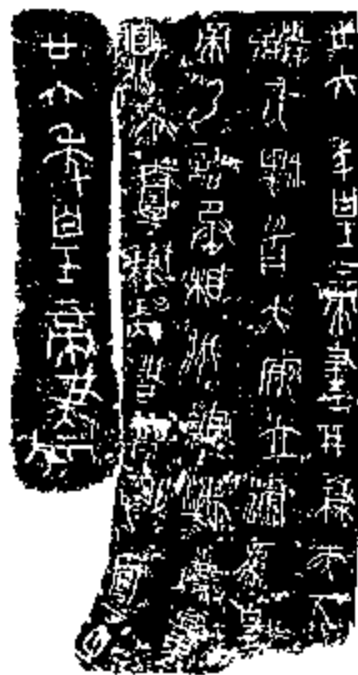 廿六年皇帝盡并兼天下
諸侯黔首大安立號為皇
帝乃詔丞相狀綰灋度量
則不壹歉疑者皆明壹之
廿六年皇帝盡并